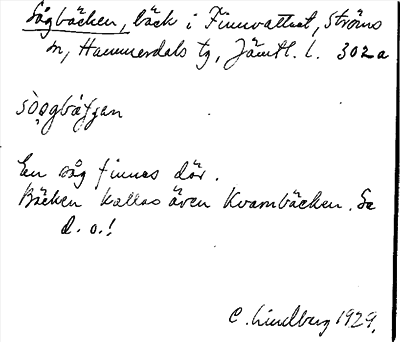 Sågbäcken, bäck i Finnvattnet, Ströms
sn, Hammerdals tg, Jämtl. l. 302a
sò̀ǫgbäʃʃen
En såg finnes där.
Bäcken kallas även Kvarnbäcken. Se
d. o.!
C. Lindberg 1929.